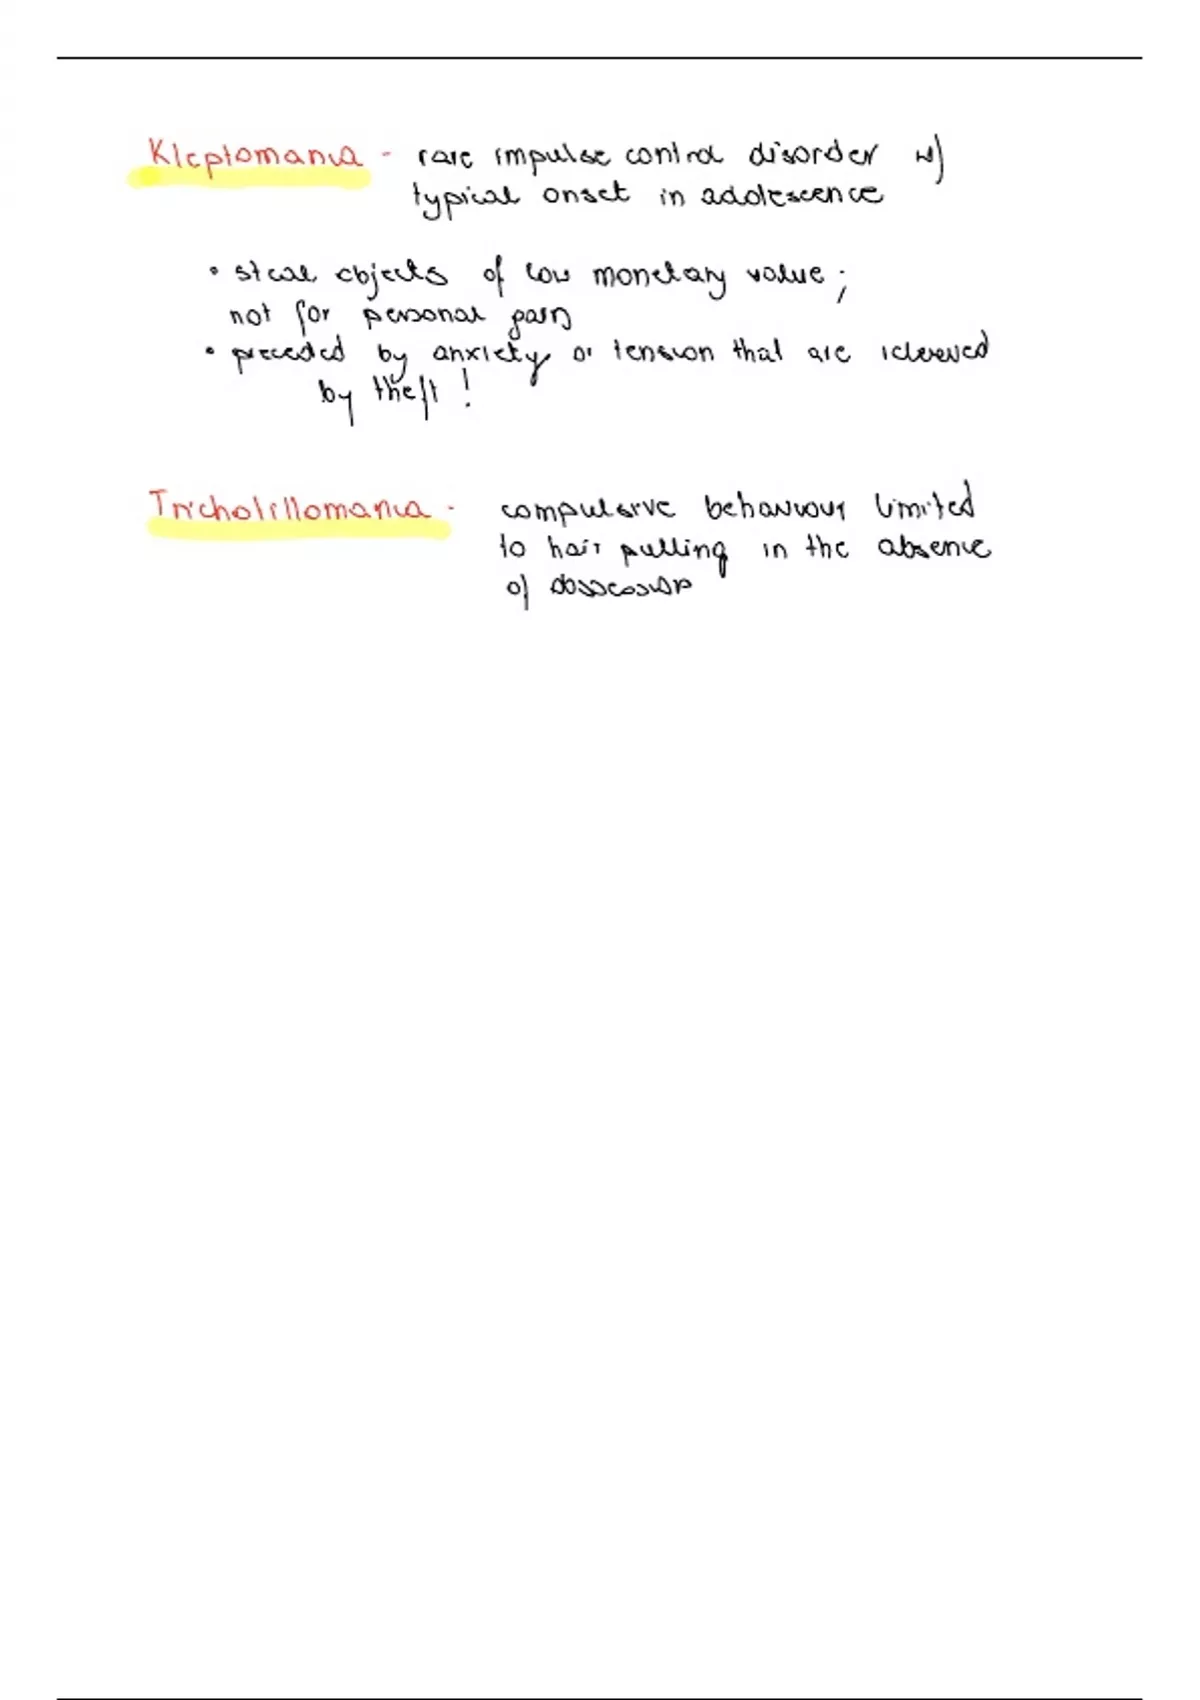 Kleptomania - rare impulse control disorder w/
typical onset in adolescence
• steal objects of low monetary value;
not for personal gain
• preceded by anxiety or tension that are relieved
by theft!
Trichotillomania - compulsive behaviour limited
to hair pulling in the absence
of obsession